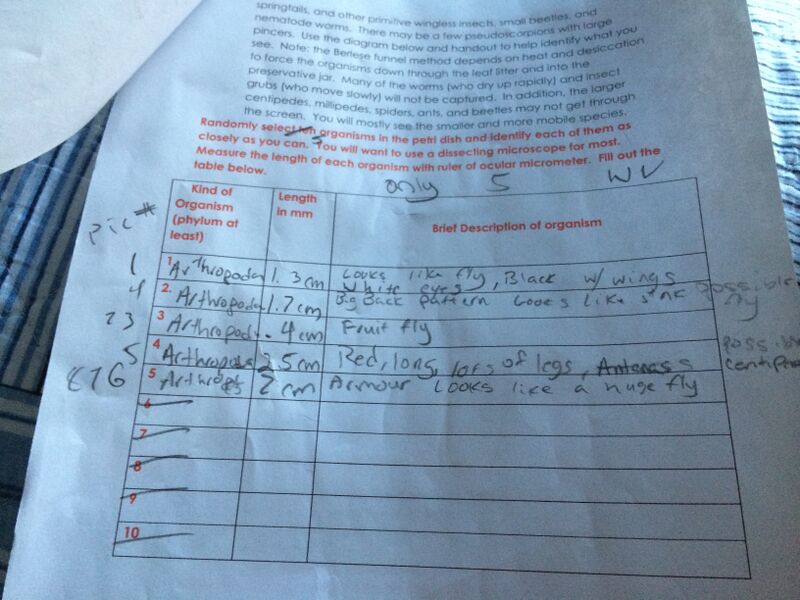 springtails, and other primitive wingless insects, small beetles, and
nematode worms. There may be a few pseudoscorpions with large
pincers. Use the diagram below and handout to help identify what you
see. Note: the Berlese funnel method depends on heat and desiccation
to force the organisms down through the leaf litter and into the
preservative jar. Many of the worms (who dry up rapidly) and insect
grubs (who move slowly) will not be captured. In addition, the larger
centipedes, millipedes, spiders, ants, and beetles may not get through
the screen. You will mostly see the smaller and more mobile species.
Randomly select ten organisms in the petri dish and identify each of them as
closely as you can. You will want to use a dissecting microscope for most.
Measure the length of each organism with ruler of ocular micrometer. Fill out the
table below.
only 5
pic #
Kind of Organism (phylum at least)
Length in mm
Brief Description of organism
1 1 Arthropoda 1.3cm Looks like fly, Black w/ wings
white eyes
4 2. Arthropoda 1.7cm Big Back pattern Looks like possible
fly
23 3 Arthropoda .4cm Fruit fly
5 4 Arthropoda 2.5cm Red, long, lots of legs, possible
5 2cm Armour Looks like a huge fly
6
7
8
9
10